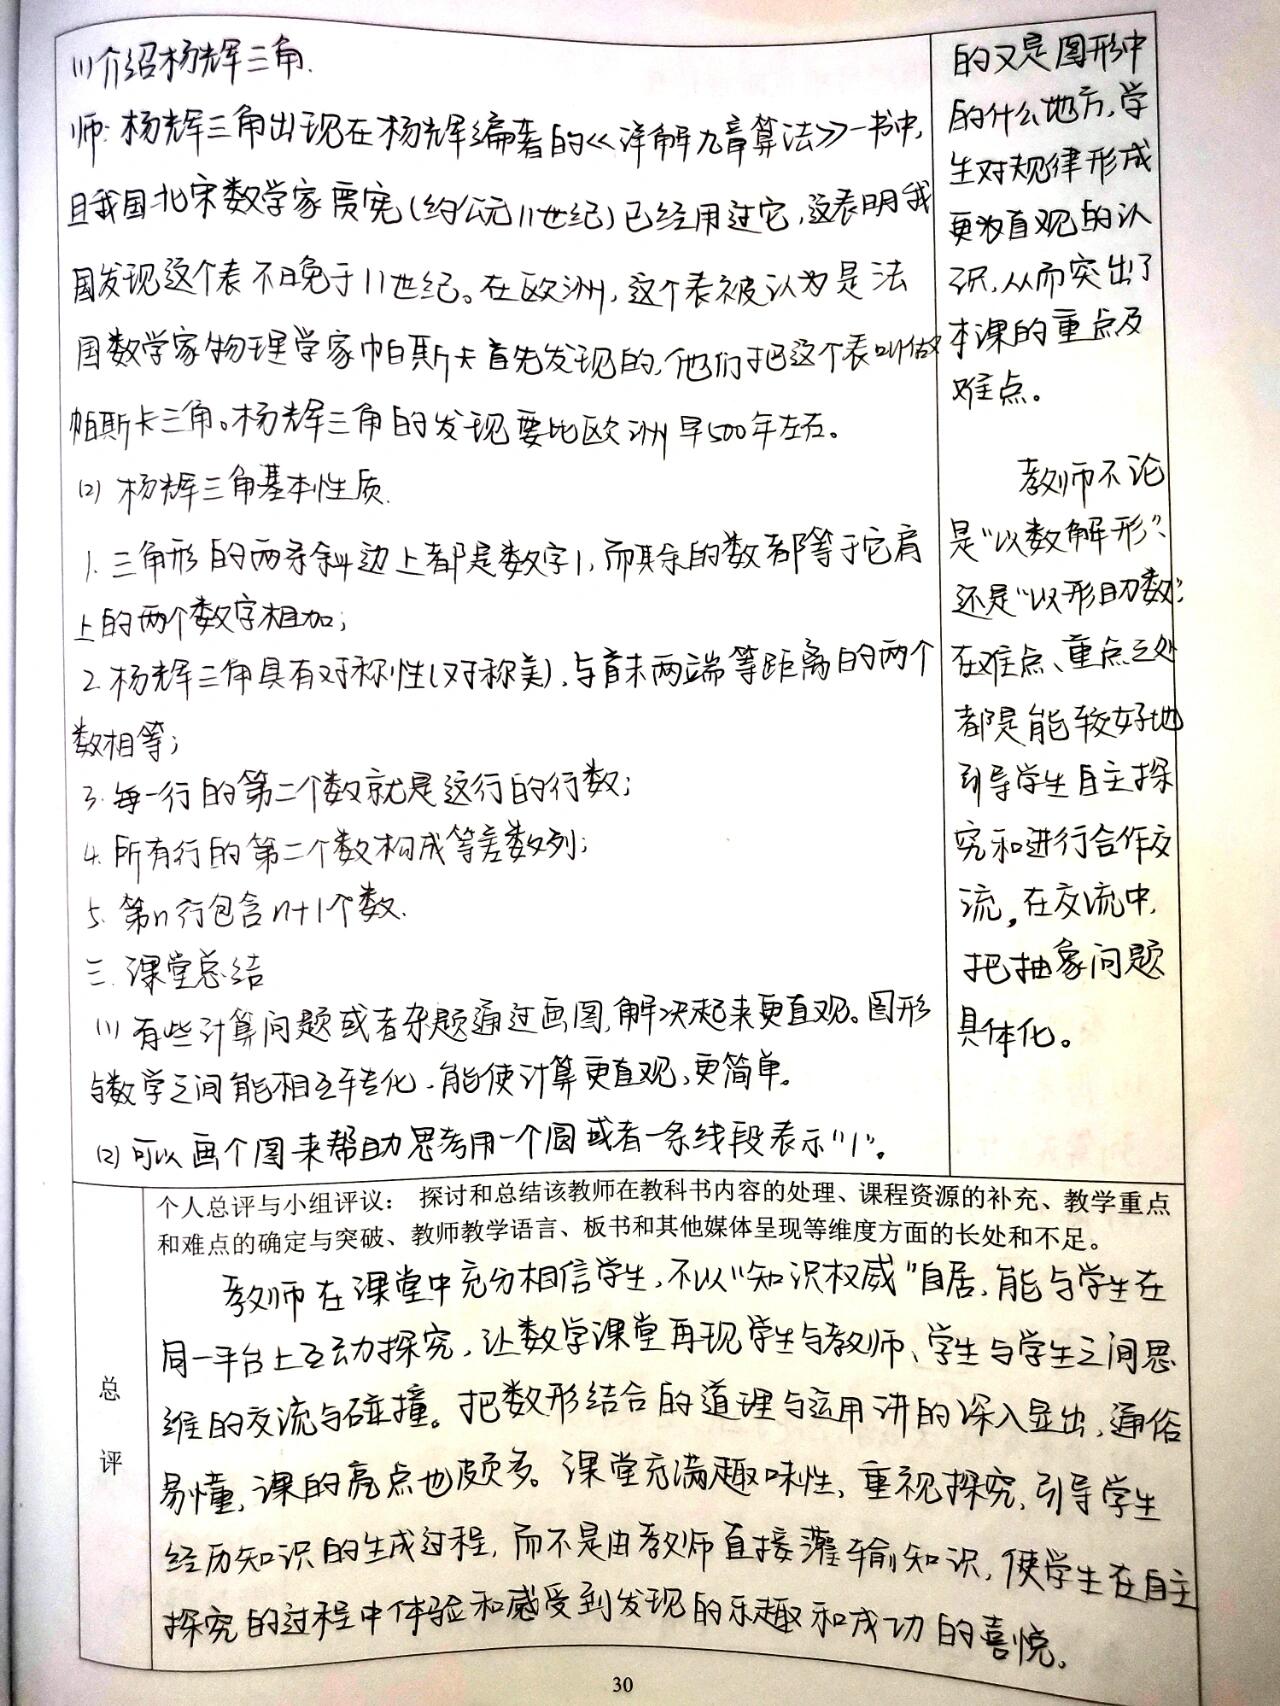 (1)介绍杨辉三角.
师:杨辉三角出现在杨辉编著的《详解九章算法》一书中,
且我国北宋数学家贾宪(约公元11世纪)已经用过它,这表明我
国发现这个表不晚于11世纪。在欧洲,这个表被认为是法
国数学家物理学家帕斯卡首先发现的,他们把这个表叫做
帕斯卡三角。杨辉三角的发现要比欧洲早500年左右。
(2) 杨辉三角基本性质.
1. 三角形的两条斜边上都是数字1,而其余的数都等于它肩
上的两个数字相加;
2. 杨辉三角具有对称性(对称美),与首末两端等距离的两个
数相等;
3. 每一行的第二个数就是这行的行数;
4. 所有行的第二个数构成等差数列;
5. 第n行包含n+1个数.
三.课堂总结
(1) 有些计算问题或者杂题通过画图,解决起来更直观。图形
与数学之间能相互转化,能使计算更直观,更简单。
(2) 可以画个图来帮助思考用一个圆或者一条线段表示“1”。
的又是图形中
的什么地方,学
生对规律形成
更为直观的认
识,从而突出了
本课的重点及
难点。
教师不论
是“以数解形”、
还是“以形助数”,
在难点、重点之处
都是能较好地
引导学生自主探
究和进行合作交
流,在交流中,
把抽象问题
具体化。
总
评
个人总评与小组评议: 探讨和总结该教师在教科书内容的处理、课程资源的补充、教学重点
和难点的确定与突破、教师教学语言、板书和其他媒体呈现等维度方面的长处和不足。
教师在课堂中充分相信学生,不以“知识权威”自居,能与学生在
同一平台上互动探究,让数学课堂再现学生与教师、学生与学生之间思
维的交流与碰撞。把数形结合的道理与运用讲的深入显出,通俗
易懂,课的亮点也颇多。课堂充满趣味性,重视探究,引导学生
经历知识的生成过程,而不是由教师直接灌输知识,使学生在自主
探究的过程中体验和感受到发现的乐趣和成功的喜悦。
30